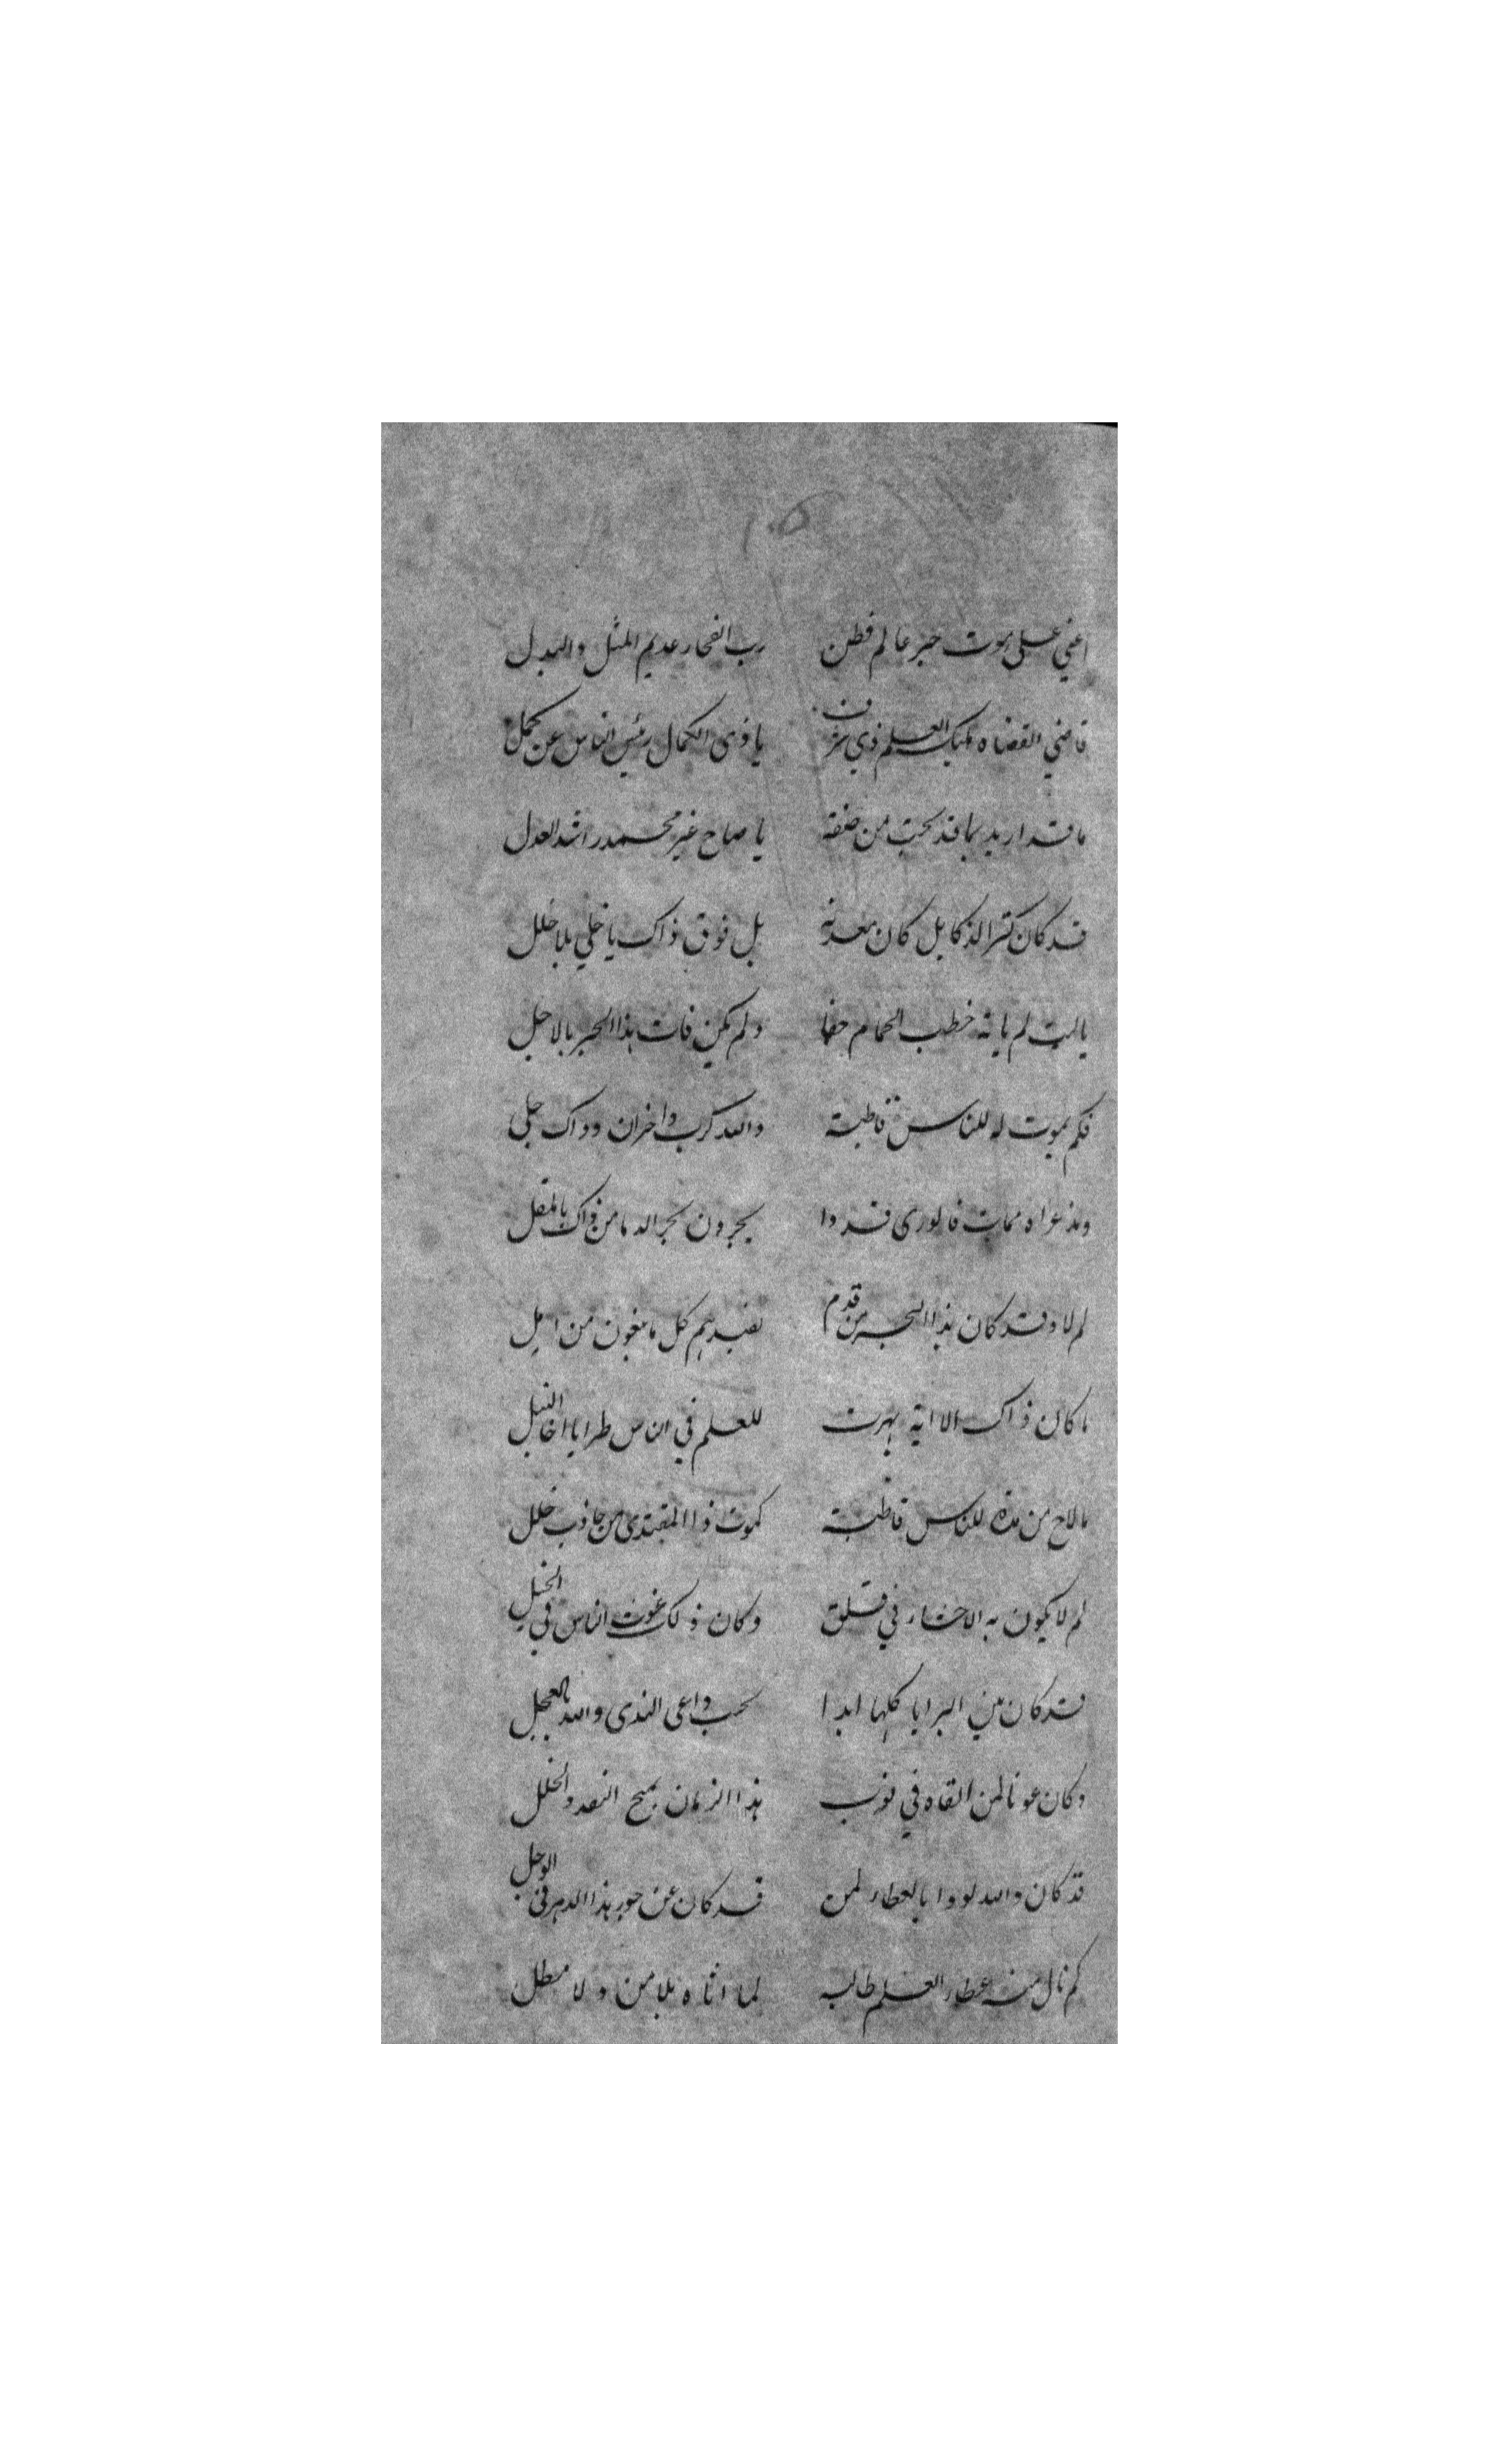 ١٠٥
اعني على موت حبر عالم فطن رب الفخار عديم المثل والبدل
قاضي القضاه مليك العلم ذي شرف يا ذوى الكمال رئيس الناس عن كمل
ما قد اريد بما قد بحت من صفة يا صاح غير محمد راشد العدل
قد كان كنز الذكا بل كان معدنه بل فوق ذاك يا خلي بلا خلل
ياليت لم ياته خطب الحمام جفا ولم يكن فات هذا الحبر بالاجل
فكم بموت له للناس قاطبة والله كرب واحزان وذاك جلي
ومذ عراه ممات فالورى قد دا يجرون بحر الدما من ذاك بالمقل
لم لا وقد كان هذا البحر من قدم يفيدهم كل ما يبغون من امل
ما كان ذاك الا اية بهرت للعلم في الناس طرا يا اخا النبل
ما لاح من مدة للناس قاطبة كموت ذا المقتدى من حاذب خلل
لم لا يكون به الاحشاء في قلق وكان ذلك غوث الناس في
قد كان بين البرايا كلها ابدا سحب واعى الندى والله بالعجل
وكان عونا لمن القاه في نوب هذا الزمان بمنح النقد والحلل
قد كان والله لوذا بالعطاء لمن قد كان عن جور هذا الدهر في الوجل
كم نال منه عطاء العلم طالبه لما اتاه بلا من ولا مطل